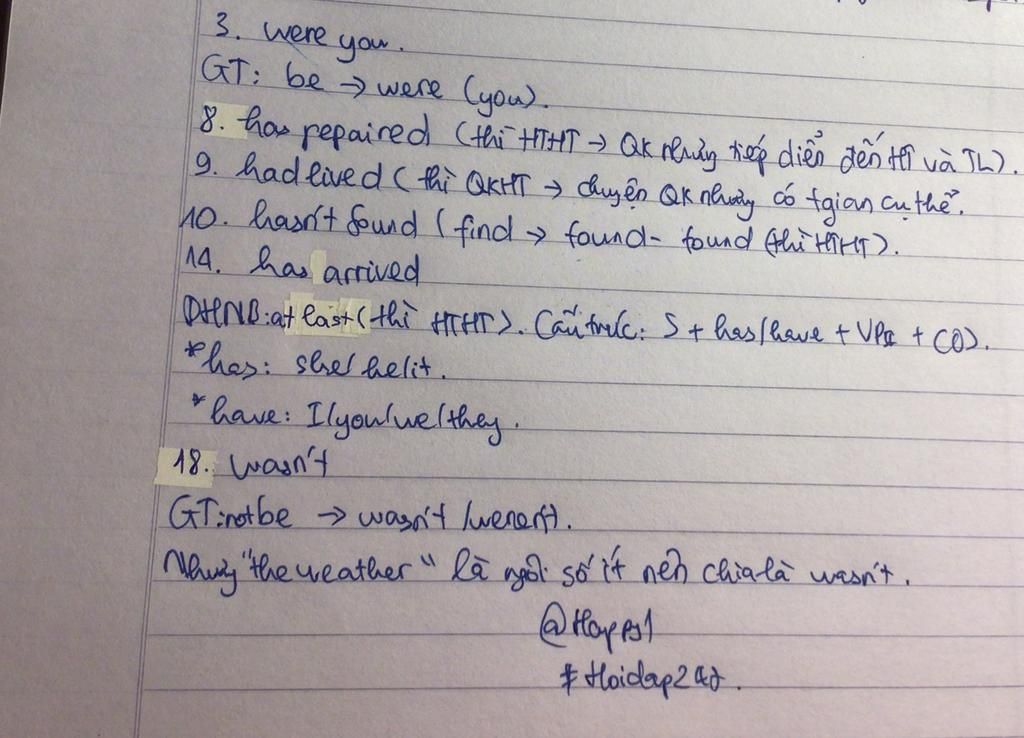 3. were you.
GT: be → were (you).
8. has repaired (thì HTHT → QK nhưng tiếp diễn đến HT và TL).
9. had lived (thì QKHT → chuyện QK nhưng có tgian cụ thể.
10. hasn't found (find → found - found (thì HTHT).
14. has arrived
DHNB: at last (thì HTHT). Cấu trúc: S + has/have + VPII + (O).
*has: she/he/it.
*have: I/you/we/they.
18. wasn't
GT: not be → wasn't /weren't).
Nhưng "the weather" là ngôi số ít nên chia là wasn't.
@Happy1
# Hoidap247.